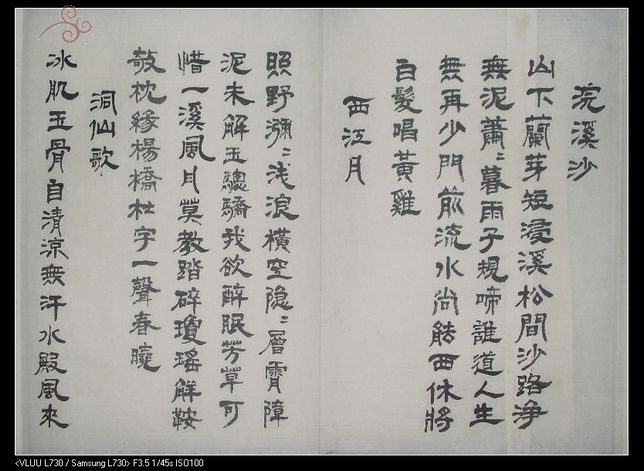 浣溪沙
山下蘭芽短浸溪松間沙路淨
無泥蕭〻暮雨子規啼誰道人生
無再少門前流水尚能西休將
白髮唱黃雞
西江月
照野瀰〻浅浪橫空隐〻層霄障
泥未解玉驄驕我欲醉眠芳草可
惜一溪風月莫教踏碎瓊瑤解鞍
攲枕綠楊橋杜宇一聲春曉
洞仙歌
冰肌玉骨自清涼無汗水殿風來
<VLUU L730 / Samsung L730> F3.5 1/45s ISO100